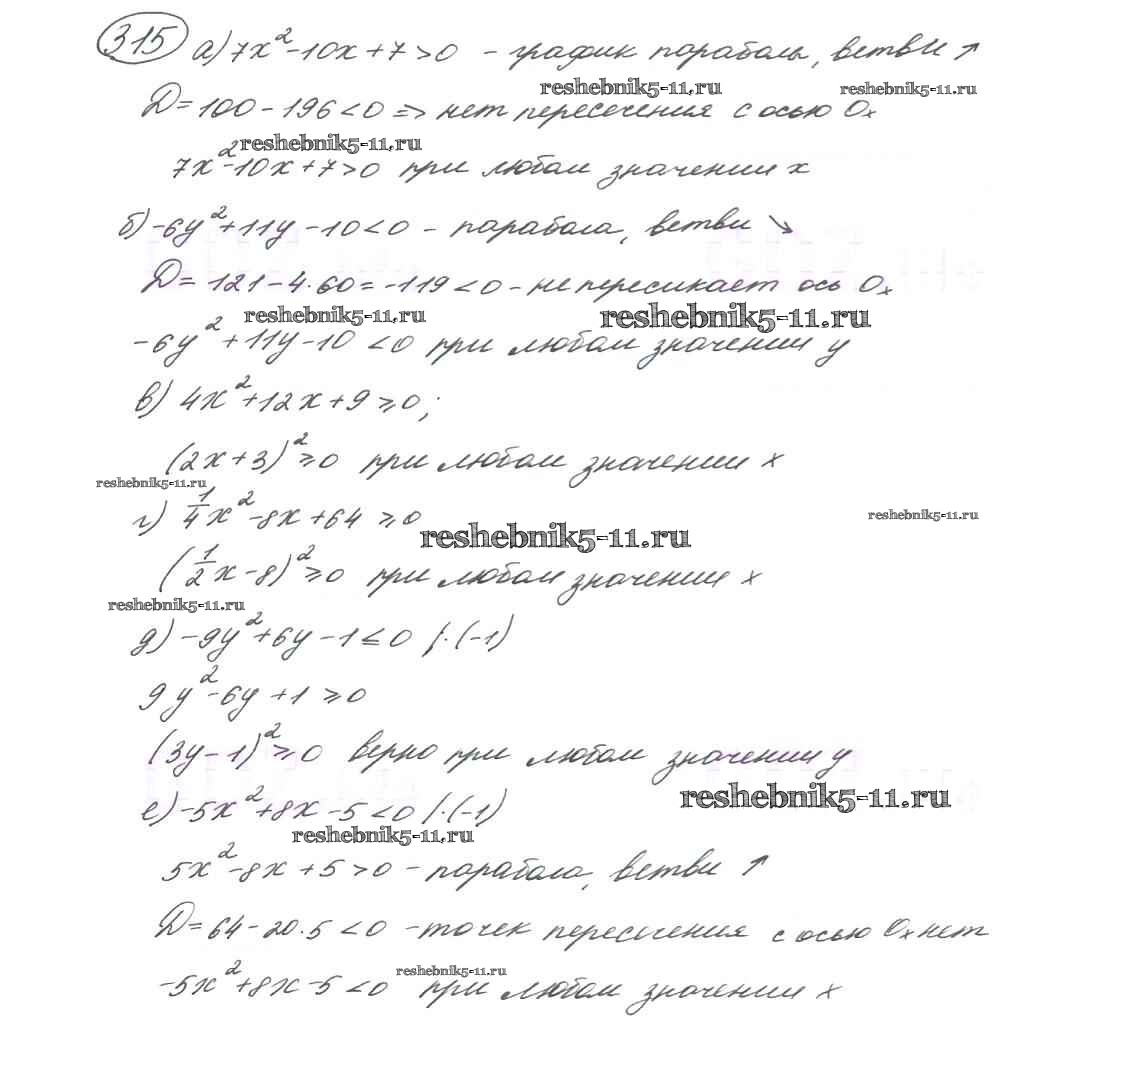 315 а) 7x² - 10x + 7 > 0 - график параболы, ветви ↑
reshebnik5-11.ru reshebnik5-11.ru
D = 100 - 196 < 0 => нет пересечения с осью Ox
reshebnik5-11.ru
7x² - 10x + 7 > 0 при любом значении x
б) -6y² + 11y - 10 < 0 - парабола, ветви ↘
D = 121 - 4·60 = -119 < 0 - не пересикает ось Ox
reshebnik5-11.ru reshebnik5-11.ru
-6y² + 11y - 10 < 0 при любом значении y
в) 4x² + 12x + 9 ≥ 0;
(2x + 3)² ≥ 0 при любом значении x
reshebnik5-11.ru
г) 1/4 x² - 8x + 64 ≥ 0
reshebnik5-11.ru reshebnik5-11.ru
(1/2 x - 8)² ≥ 0 при любом значении x
reshebnik5-11.ru
д) -9y² + 6y - 1 ≤ 0 /·(-1)
9y² - 6y + 1 ≥ 0
(3y - 1)² ≥ 0 верно при любом значении y
reshebnik5-11.ru
е) -5x² + 8x - 5 < 0 /·(-1)
reshebnik5-11.ru
5x² - 8x + 5 > 0 - парабола, ветви ↑
D = 64 - 20·5 < 0 - точек пересечения с осью Ox нет
reshebnik5-11.ru
-5x² + 8x - 5 < 0 при любом значении x